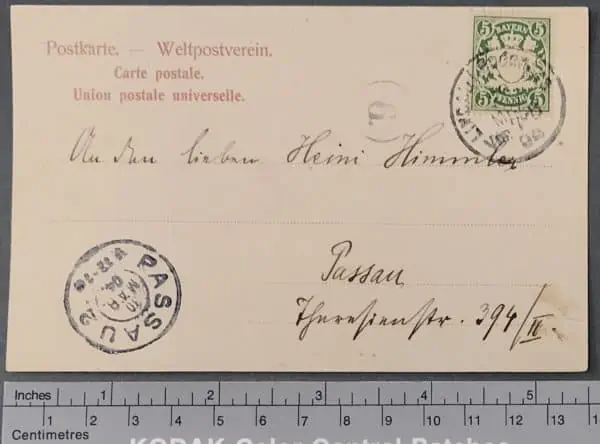 Postkarte. — Weltpostverein.
Carte postale.
Union postale universelle.
5 BAYERN 5
5 PFENNIG 5
6.
An den lieben Heini Himmler
Passau
Theresienstr. 394/II.
PASSAU 2
MAR
04
Inches 1 2 3 4 5
1 2 3 4 5 6 7 8 9 10 11 12 13
Centimetres
KODAK Color Control Patches